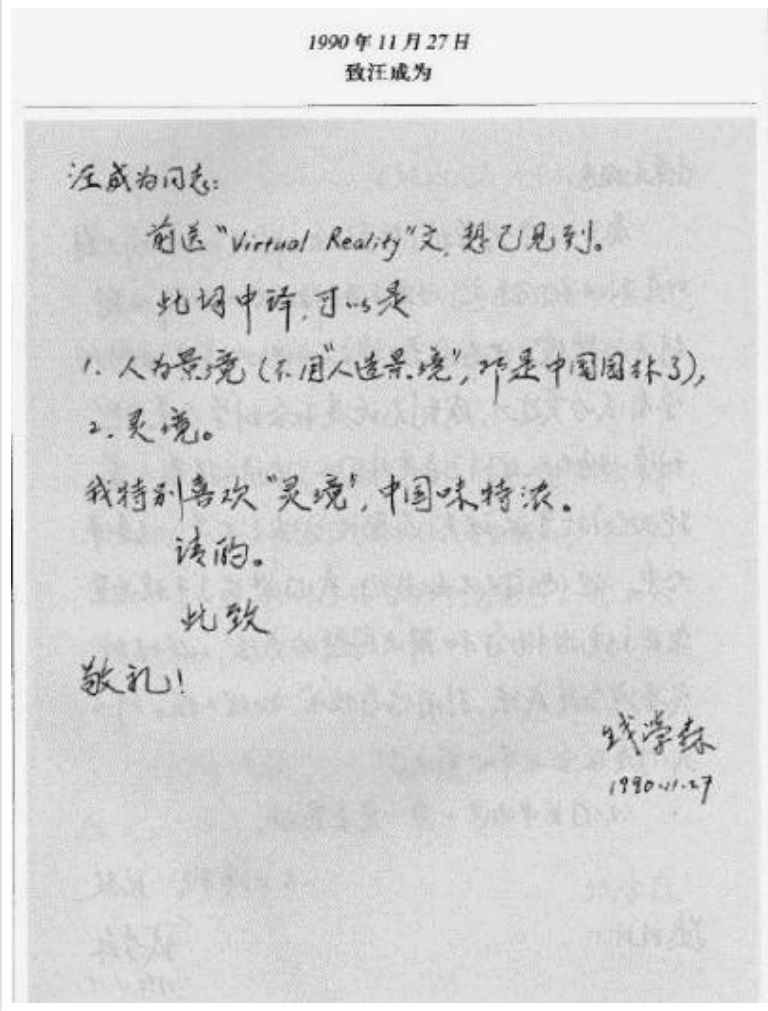 1990年11月27日
致汪成为
汪成为同志:
前送"Virtual Reality"文,想已见到。
此词中译,可以是
1. 人为景境(不用"人造景境",那是中国园林了),
2. 灵境。
我特别喜欢"灵境",中国味特浓。
请酌。
此致
敬礼!
钱学森
1990.11.27